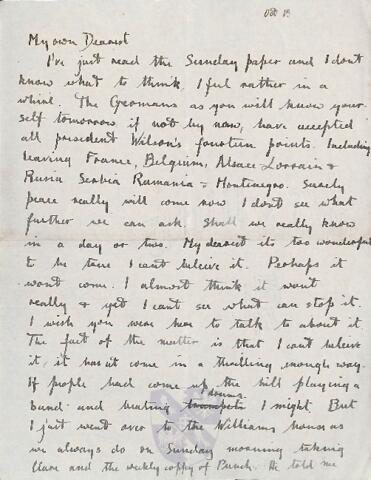 Oct 13
My own Dearest
I've just read the Sunday paper and I dont
know what to think. I feel rather in a
whirl. The Germans as you will know your-
self tomorrow if not by now, have accepted
all president Wilson's fourteen points. Including
leaving France, Belgium, Alsace-Lorrain &
Rusia Serbia Rumania & Montenegro. Surely
peace really will come now I dont see what
further we can ask. Shall we really know
in a day or two. My dearest its too wonderful
to be true I cant beleive it. Perhaps it
wont come. I almost think it wont
really & yet I cant see what can stop it.
I wish you were here to talk to about it
The fact of the matter is that I cant beleive
it, it hasnt come in a thrilling enough way.
If people had come up the hill playing a
band and beating trumpets drums I might But
I just went over to the Williams house as
we always do on Sunday morning taking
and the weekly copy of Punch. He told me